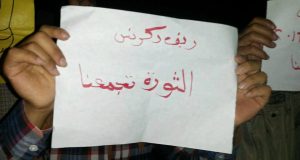 ريف دكرنس
الثورة تجمعنا